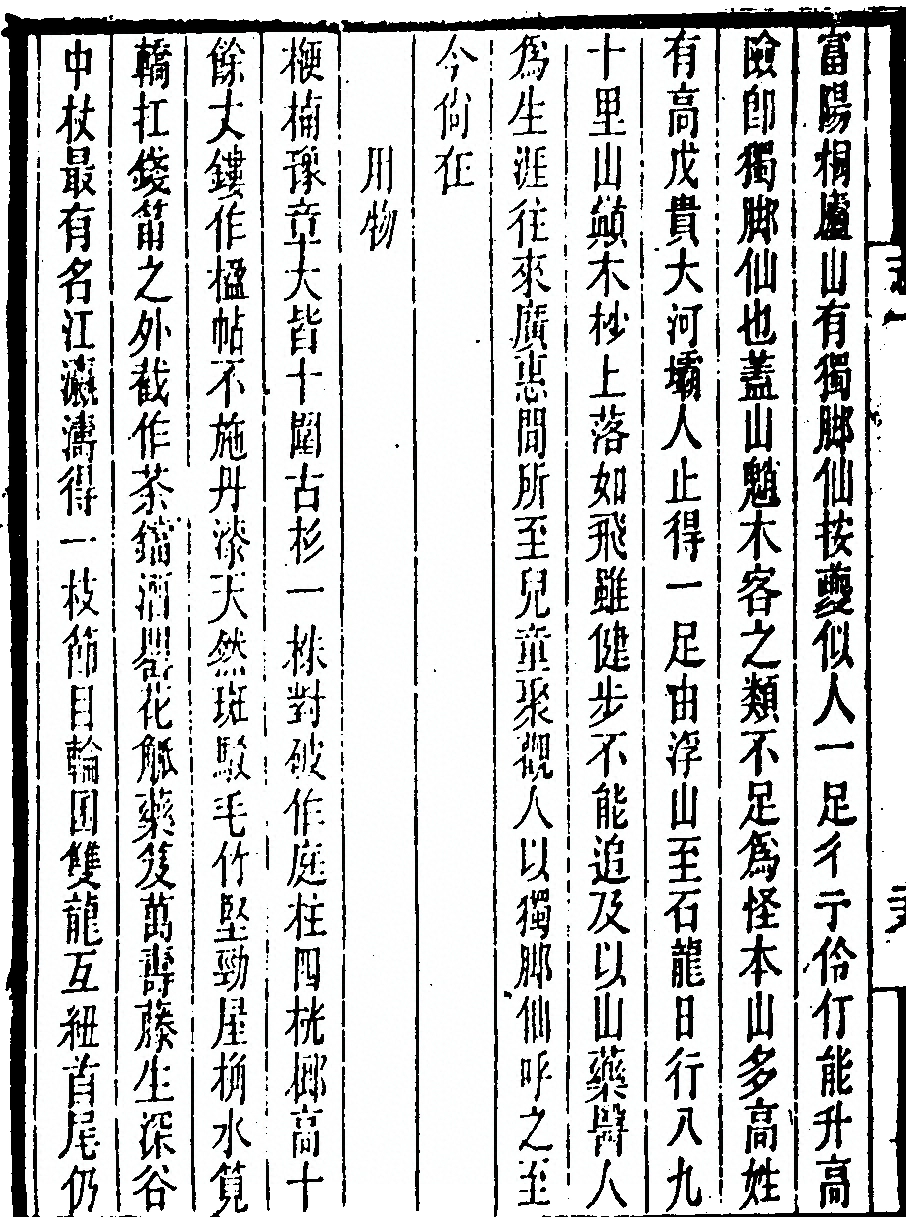 富陽桐廬山有獨脚仙按夔似人一足彳亍伶仃能升高
險卽獨脚仙也蓋山魈木客之類不足爲怪本山多高姓
有高戊貴大河壩人止得一足由浮山至石龍日行八九
十里山巔木杪上落如飛雖健步不能追及以山藥醫人
爲生涯往來廣惠間所至兒童聚觀人以獨脚仙呼之至
今尙在
用物
楩楠豫章大皆十圍古杉一株對破作庭柱四桄榔高十
餘丈鏤作楹帖不施丹漆天然斑駁毛竹堅勁屋桷水筧
轎扛錢筩之外截作茶鐺酒罌花觚藥笈萬壽藤生深谷
中杖最有名江瀛濤得一枝節目輪囷雙龍互紐首尾仍